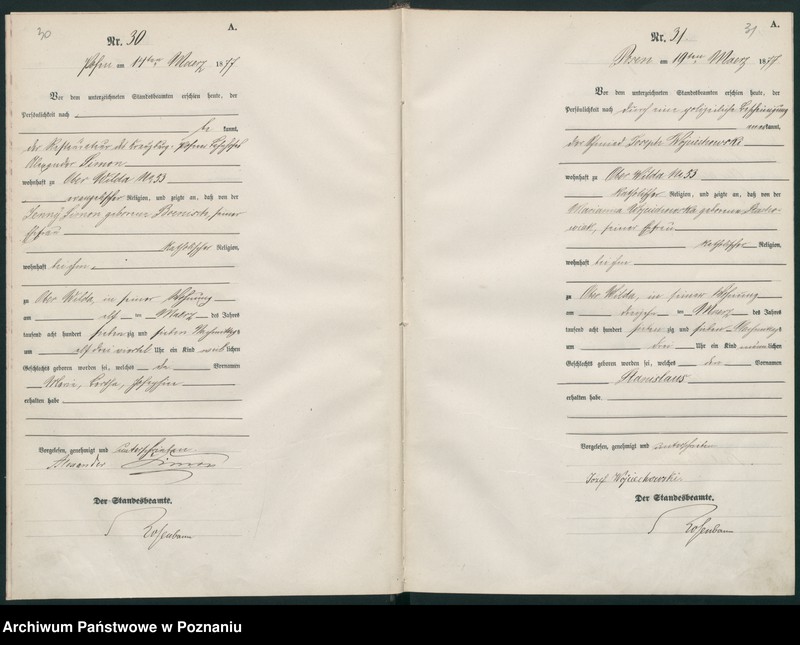 30
A.
Nr. 30
Posen am 14ten Maerz 1877
Vor dem unterzeichneten Standesbeamten erschien heute, der
Persönlichkeit nach
be kannt,
der Restaurateur
Alexander Simon
wohnhaft zu Ober Wilda No 53
evangelischer Religion, und zeigte an, daß von der
Jenny Simon geborene seiner
Ehefrau
katholischer Religion,
wohnhaft bei ihm
zu Ober Wilda, in seiner Wohnung
am elf ten Maerz des Jahres
tausend acht hundert sieben zig und sieben Nachmittags
um elf drei viertel Uhr ein Kind weib lichen
Geschlechts geboren worden sei, welches die Vornamen
Maria, Bertha, Josephine
erhalten habe
Vorgelesen, genehmigt und unterschrieben
Alexander Simon
Der Standesbeamte.
Rosenbaum
31
A.
Nr. 31
Posen am 19ten Maerz 1877
Vor dem unterzeichneten Standesbeamten erschien heute, der
Persönlichkeit nach durch eine polizeiliche Bescheinigung
aner kannt,
der Schmied Joseph Wojciechowski
wohnhaft zu Ober Wilda No 53
katholischer Religion, und zeigte an, daß von der
Marianna Wojciechowska geborene
seiner Ehefrau
katholischer Religion,
wohnhaft bei ihm
zu Ober Wilda, in seiner Wohnung
am ten Maerz des Jahres
tausend acht hundert sieben zig und sieben Nachmittags
um drei Uhr ein Kind männ lichen
Geschlechts geboren worden sei, welches den Vornamen
Stanislaus
erhalten habe
Vorgelesen, genehmigt und unterschrieben
Josef Wojciechowski
Der Standesbeamte.
Rosenbaum
Archiwum Państwowe w Poznaniu